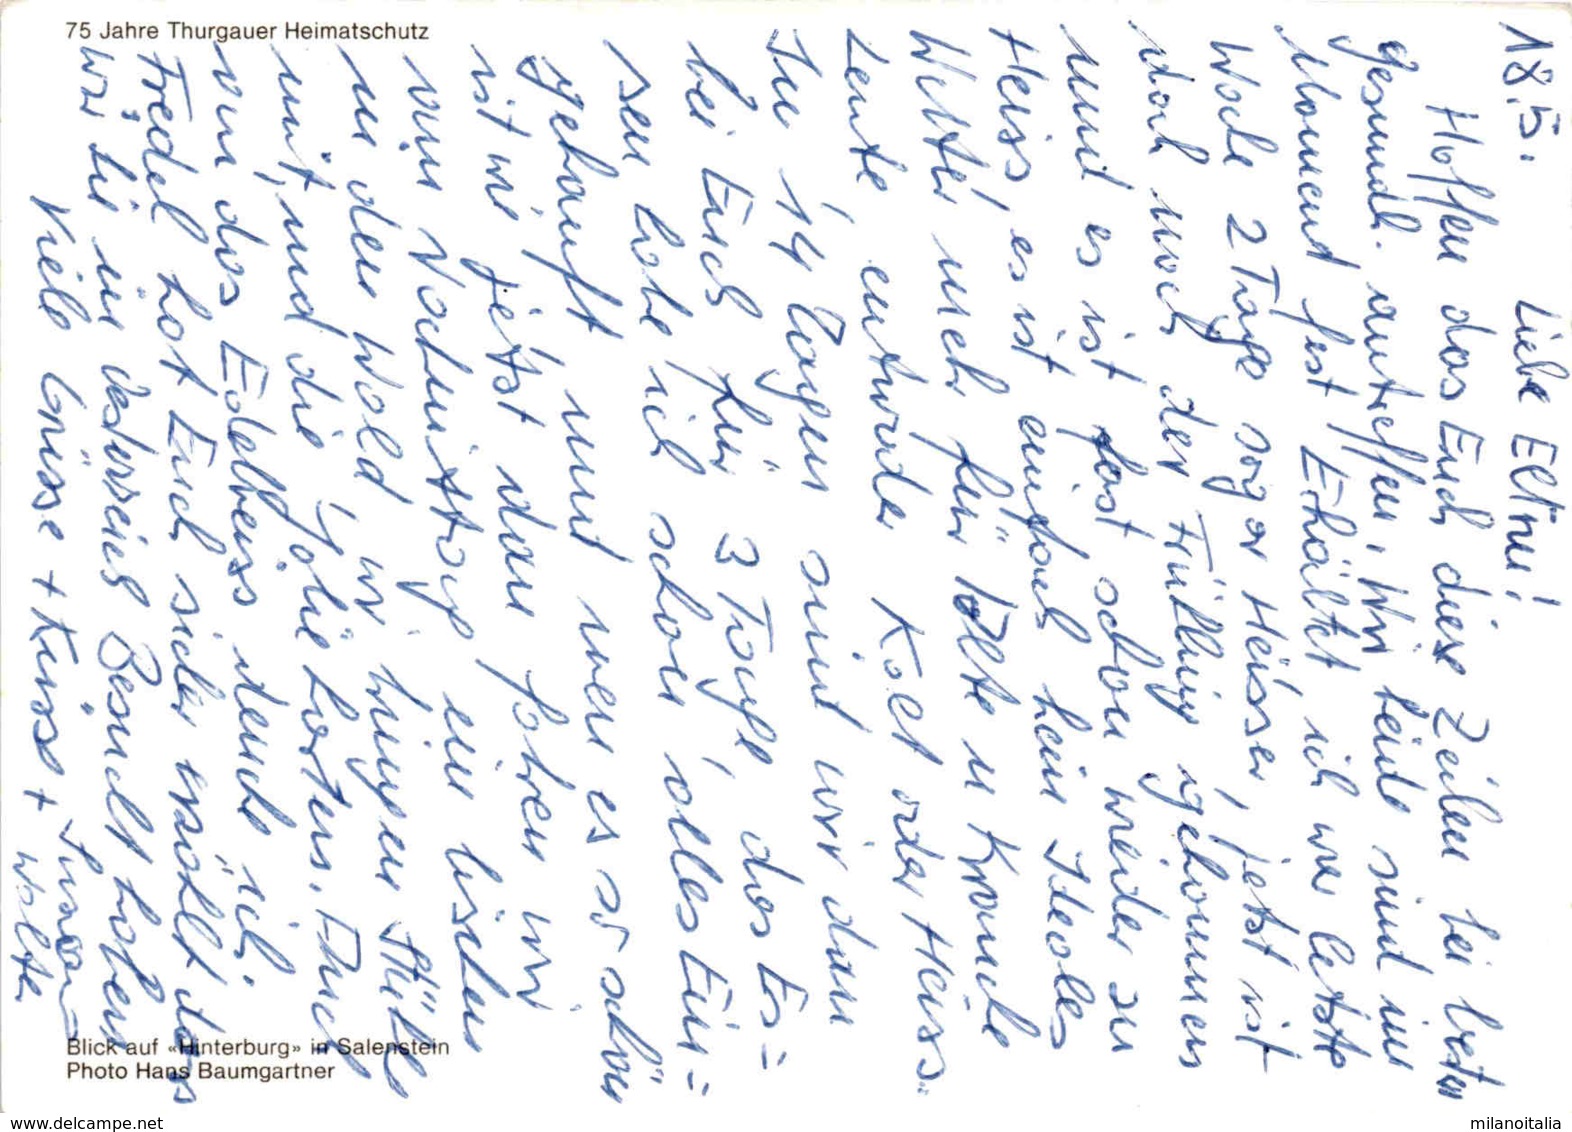 75 Jahre Thurgauer Heimatschutz
18.5.
Liebe Eltern!
Hoffen das Euch diese Zeilen bei besten
gesundh. antreffen, Wir beide sind im
Moment fest Erkältet, ich war letzte
Woche 2 Tage sogar Heisser, jetzt ist
doch noch der Frühling gekommen
und es ist fast schon wieder zu
Heiss, es ist einfach kein Ideales
Wetter mehr für Alte u Kranke
Leute, entweder Kalt oder Heiss.
In 14 Tagen sind wir dann
bei Euch für 3 Tage, das Es=
sen habe ich schon alles Ein=
gekauft, und wen es so schön
ist wie jetzt dan fahren wir
am Nachmittag ein bischen
in den Wald, wir bringen Stühle
mit, und die Jolie Karten. Euch
um das Edelweiss denke ich.
Fredel hat Euch sicher erzählt das
wir hir in Besuch haben
Viele Grüsse + Kuss +
Susan
Walter
Blick auf «Hinterburg» in Salenstein
Photo Hans Baumgartner
www.delcampe.net
milanoitalia